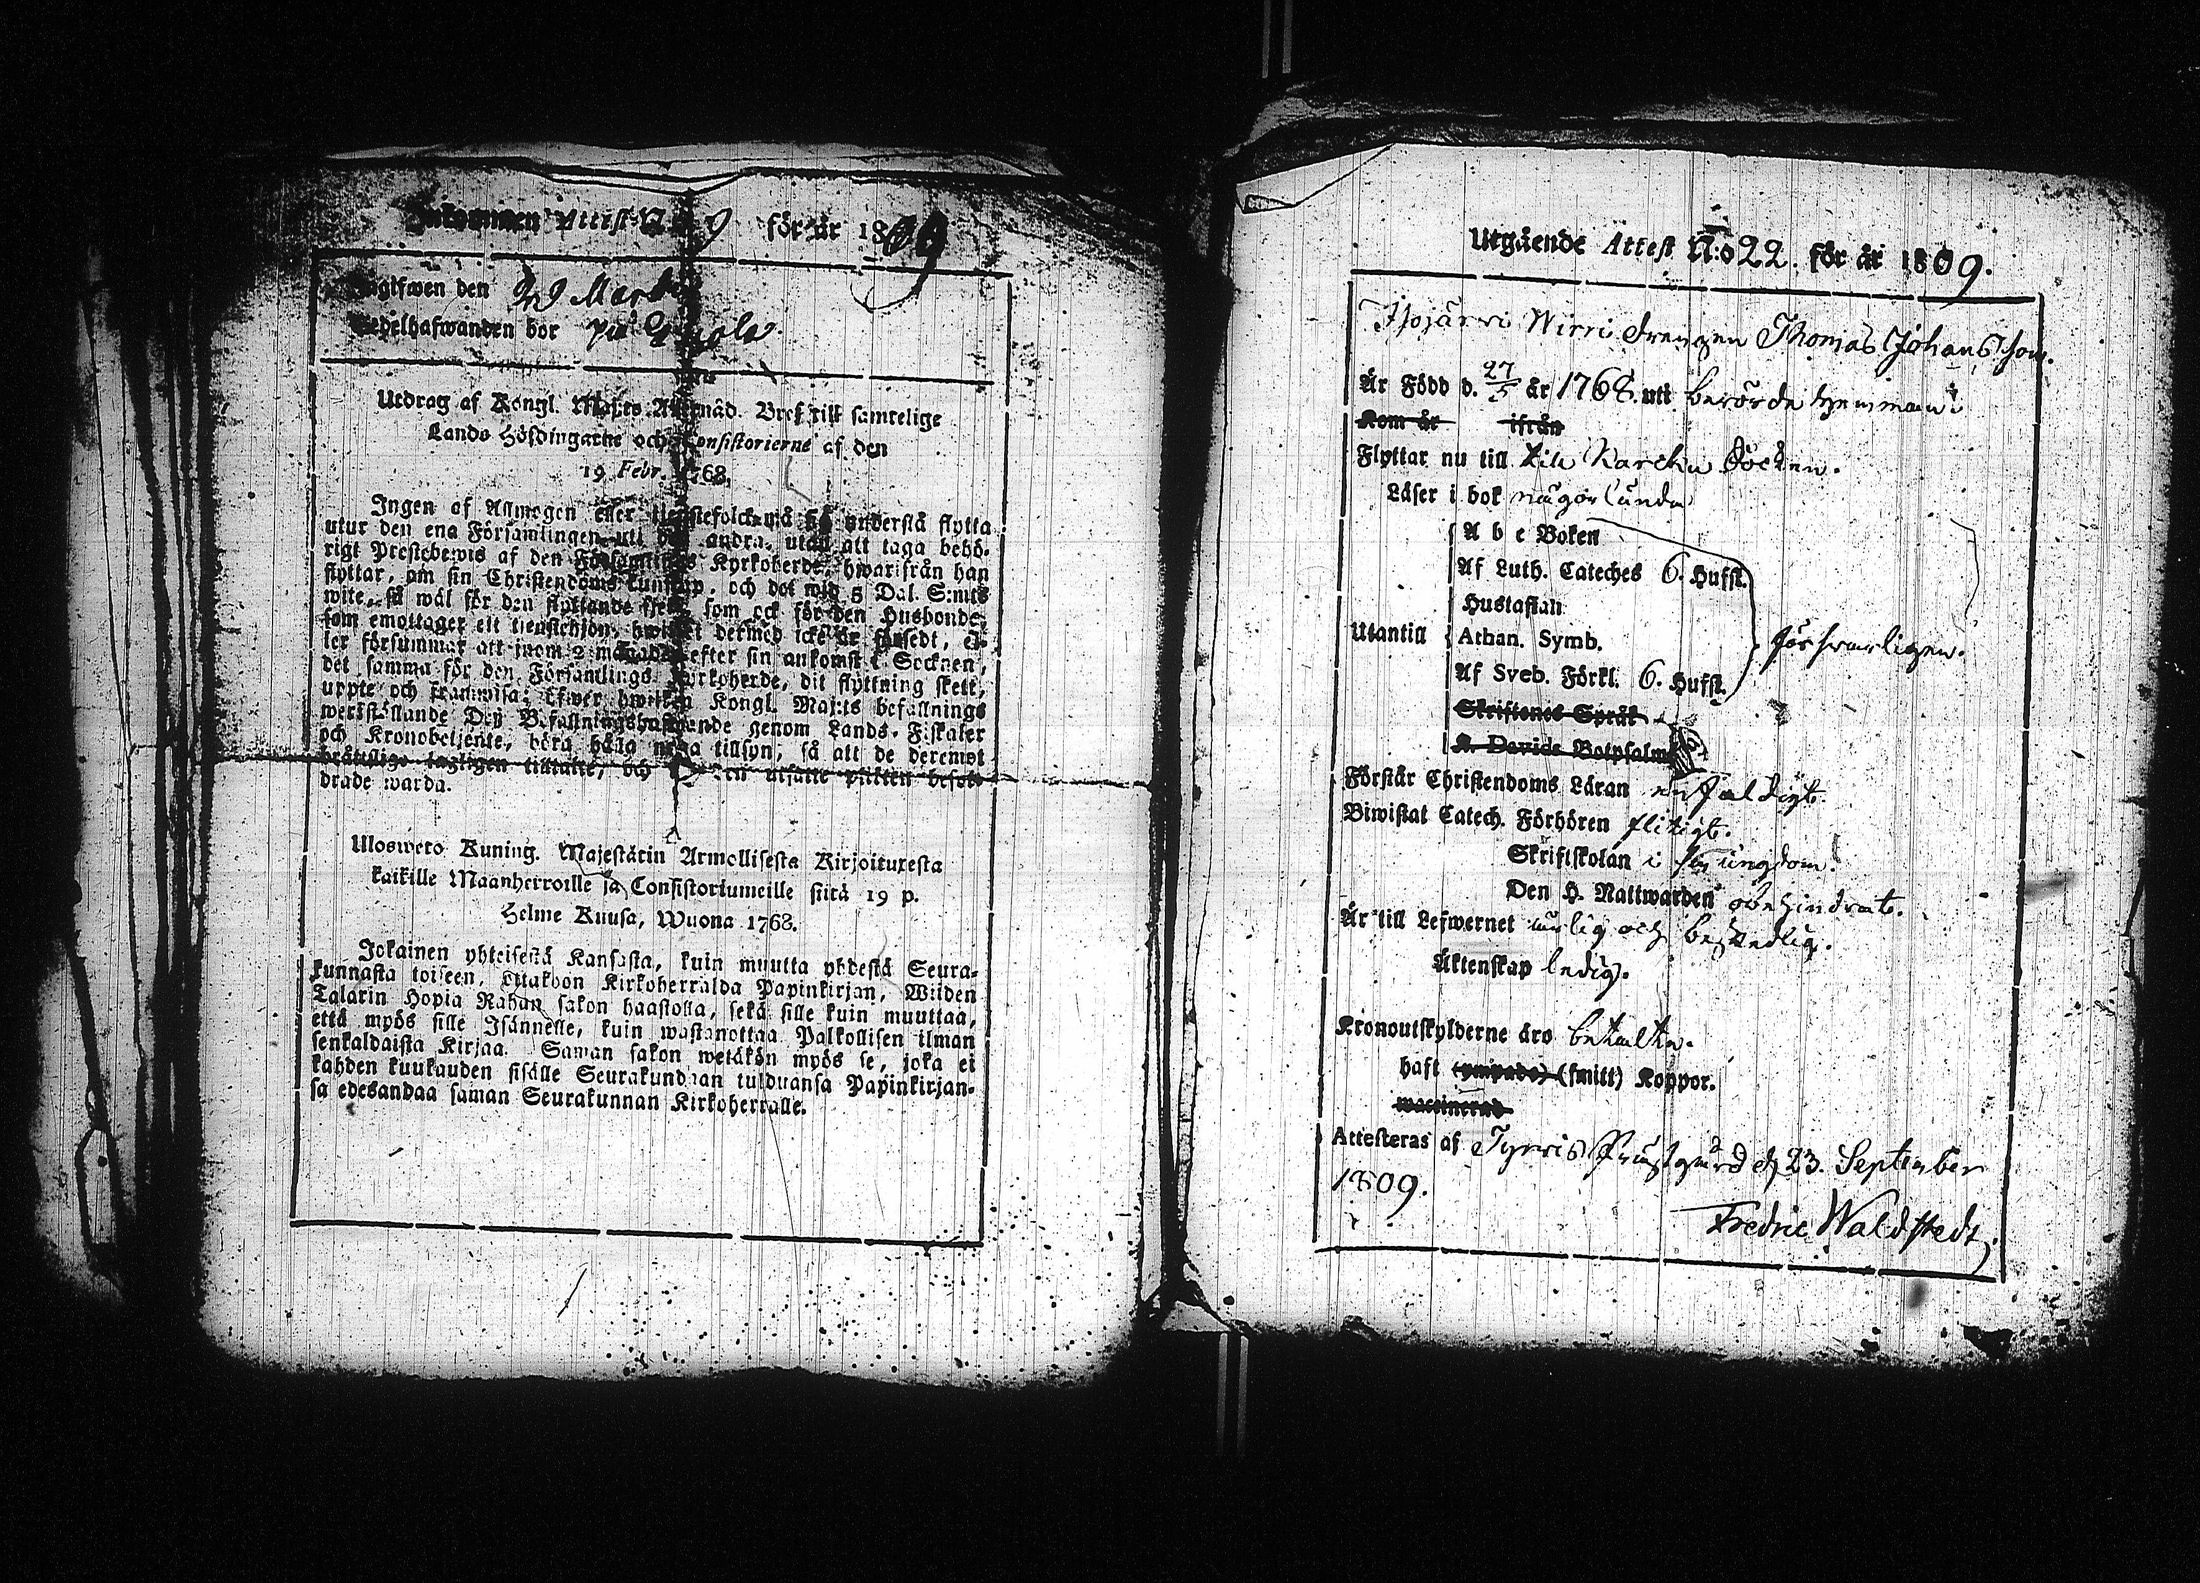 Inkommen Attest N:o 9 för år 1809
Ingifwen den 29 Martii
Vedelhafwanden bor på
Utdrag af Kongl. Maj:ts Allernåd. Bref till samtelige
Lands Höfdingarne och Consistorierne af den
19 Febr. 1768.
Ingen af Allmogen eller tienstefolck må så understå flytta
utur den ena Församlingen uti den andra, utan att taga behö-
rigt Prestebewis af den Församlings Kyrkoherde, hwarifrån han
flyttar, om sin Christendoms kunskap, och det wid 5 Dal. S:mts
wite, så wäl för den flyttande sielf, som ock för den Husbonde,
som emottager ett tienstehjon, hwilket dermed icke är försedt, el-
ler försummar att inom 2 månader efter sin ankomst i Socknen,
det samma för den Församlings Kyrkoherde, dit flyttning skett,
uppte och framwisa; Efwer hwilken Kongl. Maj:ts befallnings
werkställande Den Befallningshafwande genom Lands-Fiskaler
och Kronobetjente, böra hålla noga tillsyn, så att de deremot
brättslige lagligen tilltalte, och till utsatte plikten befor-
drade warda.
Uloswero Kuning. Majestätin Armollisesta Kirjoituxesta
kaikille Maanherroille ja Consistoriumeille siitä 19 p.
Helme Kuusa, Wuona 1768.
Jokainen yhteisestä Kansasta, kuin muutta yhdestä Seura-
kunnasta toiseen, ottakoon Kirkoherralda Papinkirjan, Wiiden
Talarin Hopia Rahan sakon haastolla, sekä sille kuin muuttaa,
että myös sille Isännelle, kuin wastanottaa Palkollisen ilman
senkaldaista Kirjaa. Saman sakon wetäkön myös se, joka ei
kahden kuukauden sisälle Seurakundaan tulduansa Papinkirjan-
sa edesandaa saman Seurakunnan Kirkoherralle.
Utgående Attest N:o 22. för år 1809.
Ispjärwi Wirri Drengen Thomas Johansson.
Är Född d. 27/5 år 1768. uti berörde hemman
Kom år ifrån
Flyttar nu till Karcku Socken.
Läser i bok någorlunda
A b e Boken
Af Luth. Cateches 6. Hufst.
Hustaflan
Utantill Athan. Symb. försvarligen.
Af Sveb. Förkl. 6. Hufst.
Skriftenes Språk
K. Davids Botpsalm
Förstår Christendoms Läran enfaldigt.
Biwistat Catech. Förhören flitigt.
Skriftskolan i sin ungdom.
Den H. Nattwarden obehindrat.
Är till Lefwernet ärlig och beskedlig.
Äktenskap ledig.
Kronoutskylderne äro betalte.
haft (ympade) (smitt) Koppor.
waccinerad
Attesteras af Tyrwis Prästgård d. 23. September
1809.
Fredric Waldstedt.